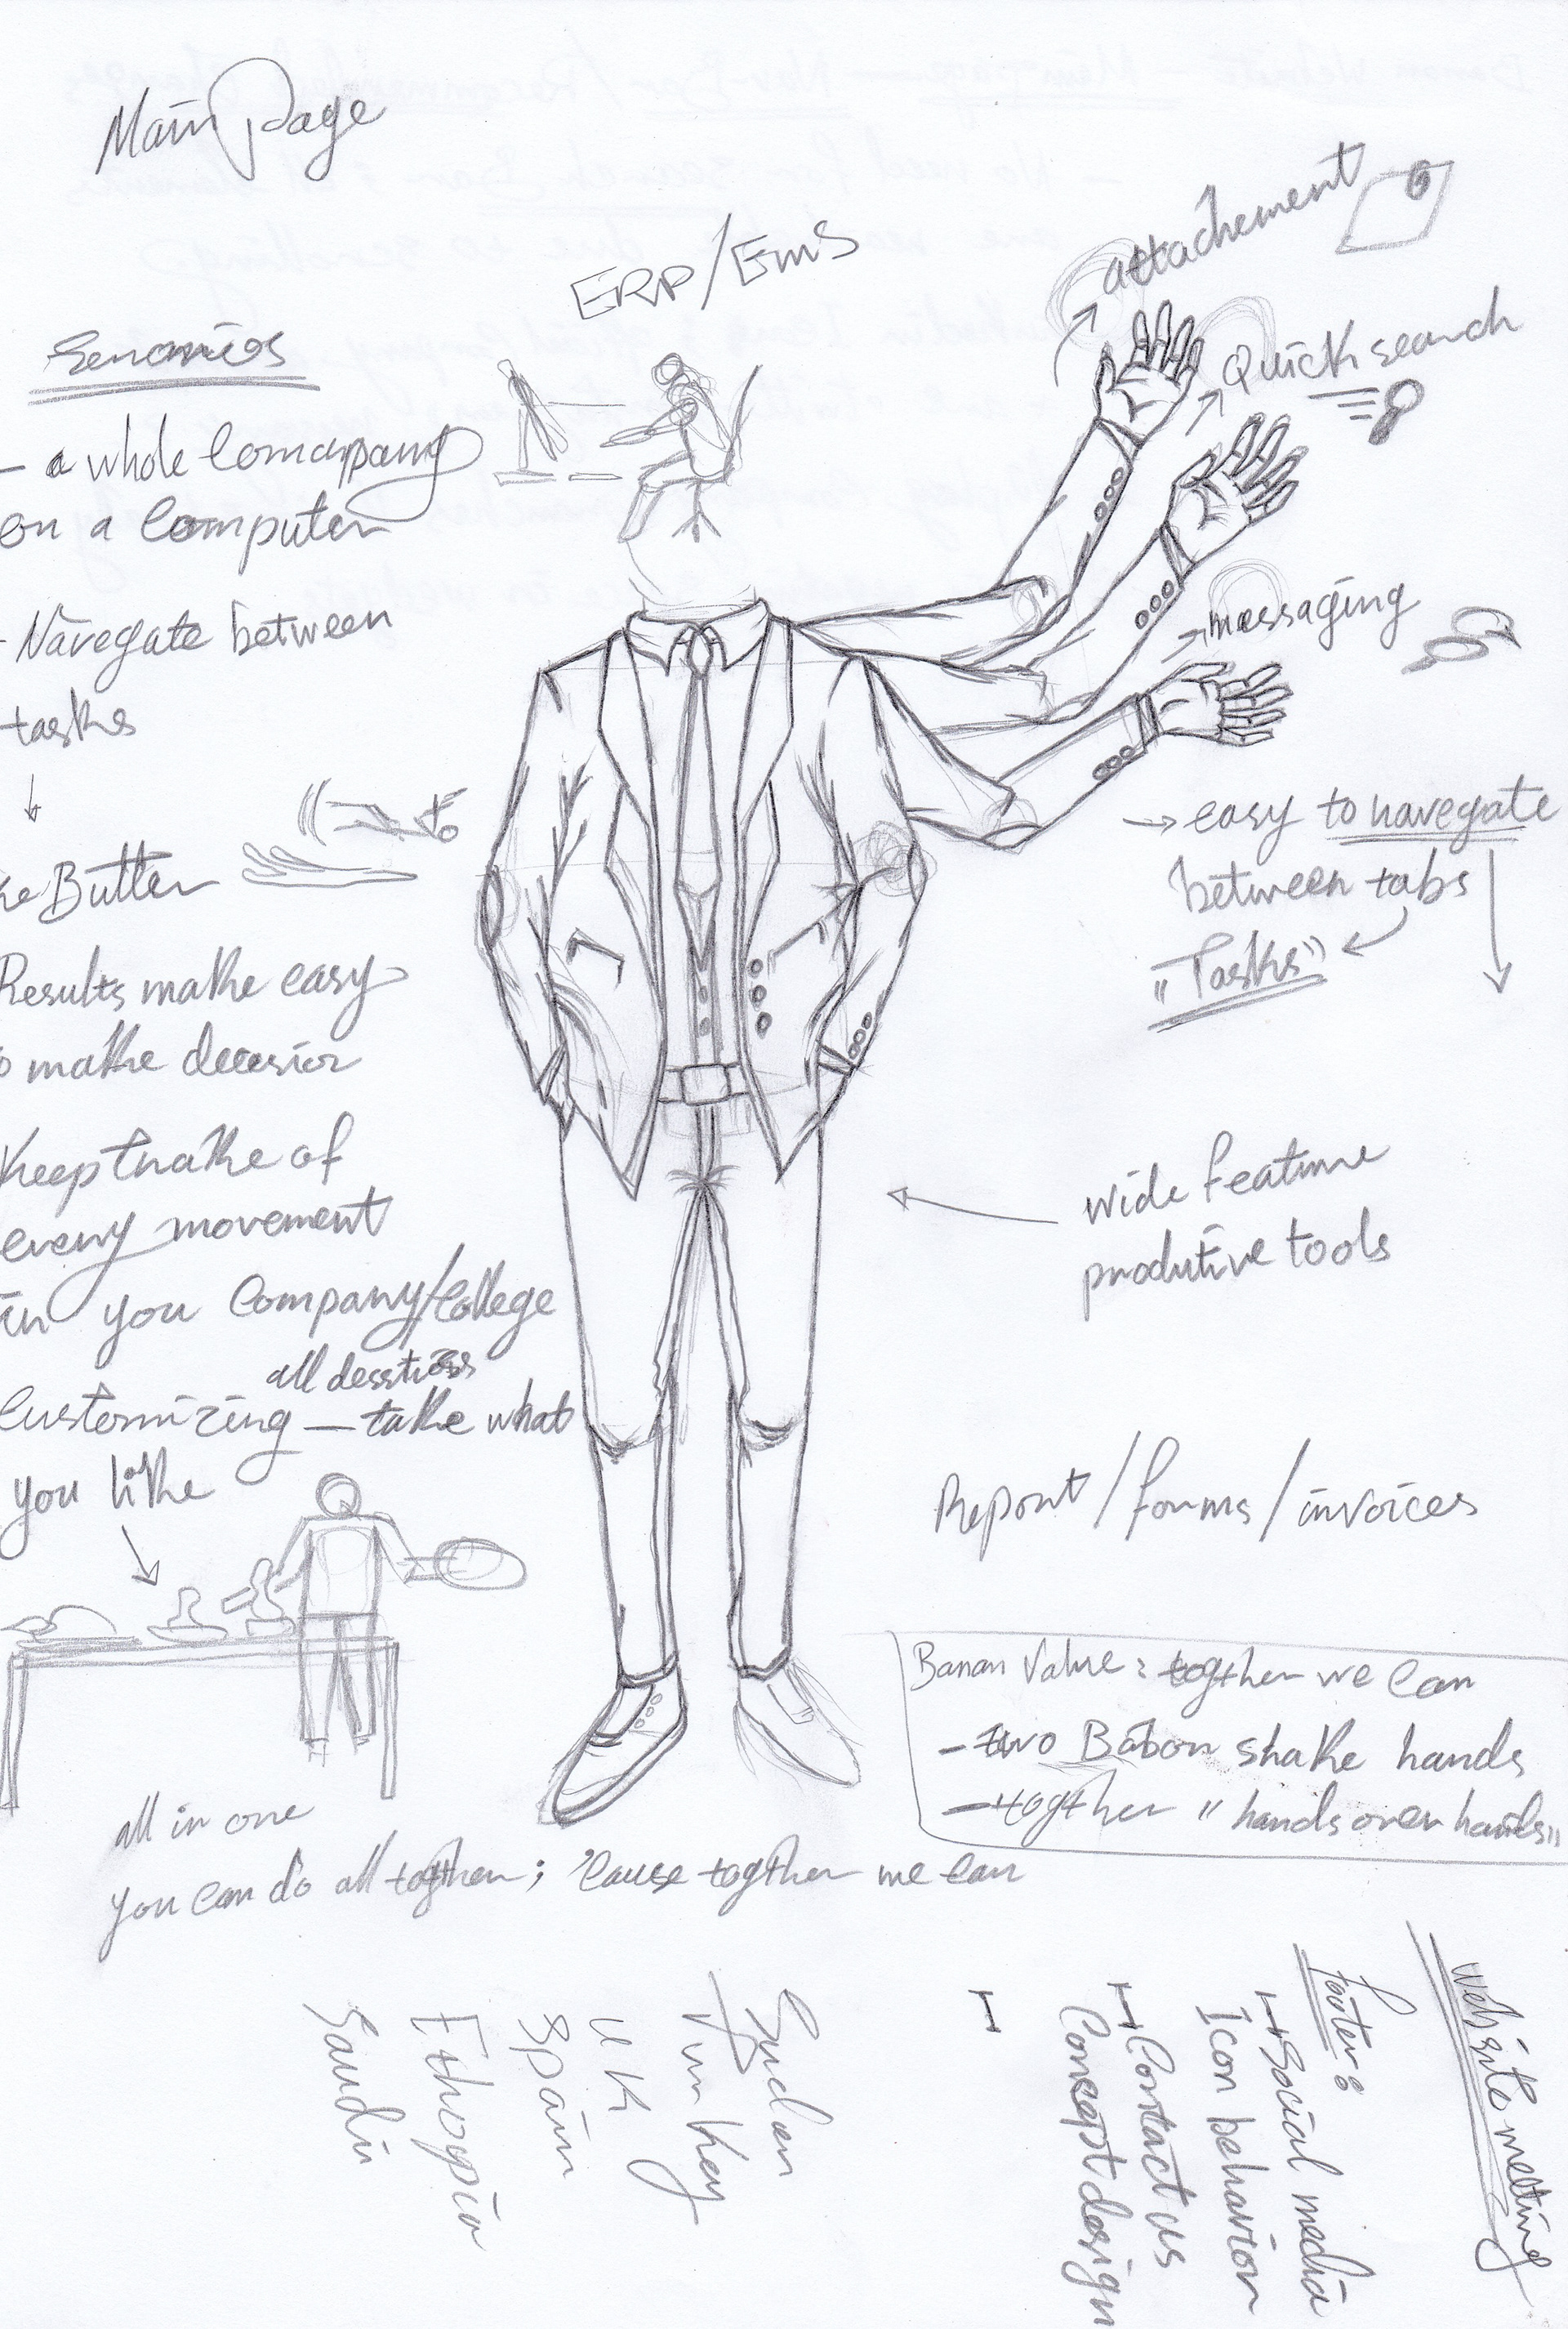 Main Page
ERP/EMS
attachement
Quick search
messaging
→ easy to navegate
between tabs
"Tasks"
wide feature
produtive tools
Report/forms/invoices
Senarios
- a whole Comappany
on a Computer
- Navegate between
tasks
ke Butter
Results make easy
o make decesior
Keep trake of
every movement
in you Company/College
all desstiess
Customizing — take what
you like
Banan Value: togther we Can
- two Babon shake hands
- togther "hands over hands"
all in one
you Can do all togther; 'Cause togther we Can
Website meeting
footer:
Social media
Icon behavior
Contact us
Concept design
Sudan
Turkey
UK
Spain
Ethiopia
Saudi